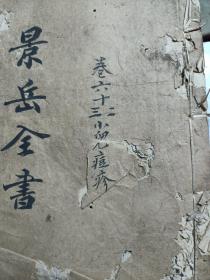 景岳全書
卷六十二
三小兒痘疹